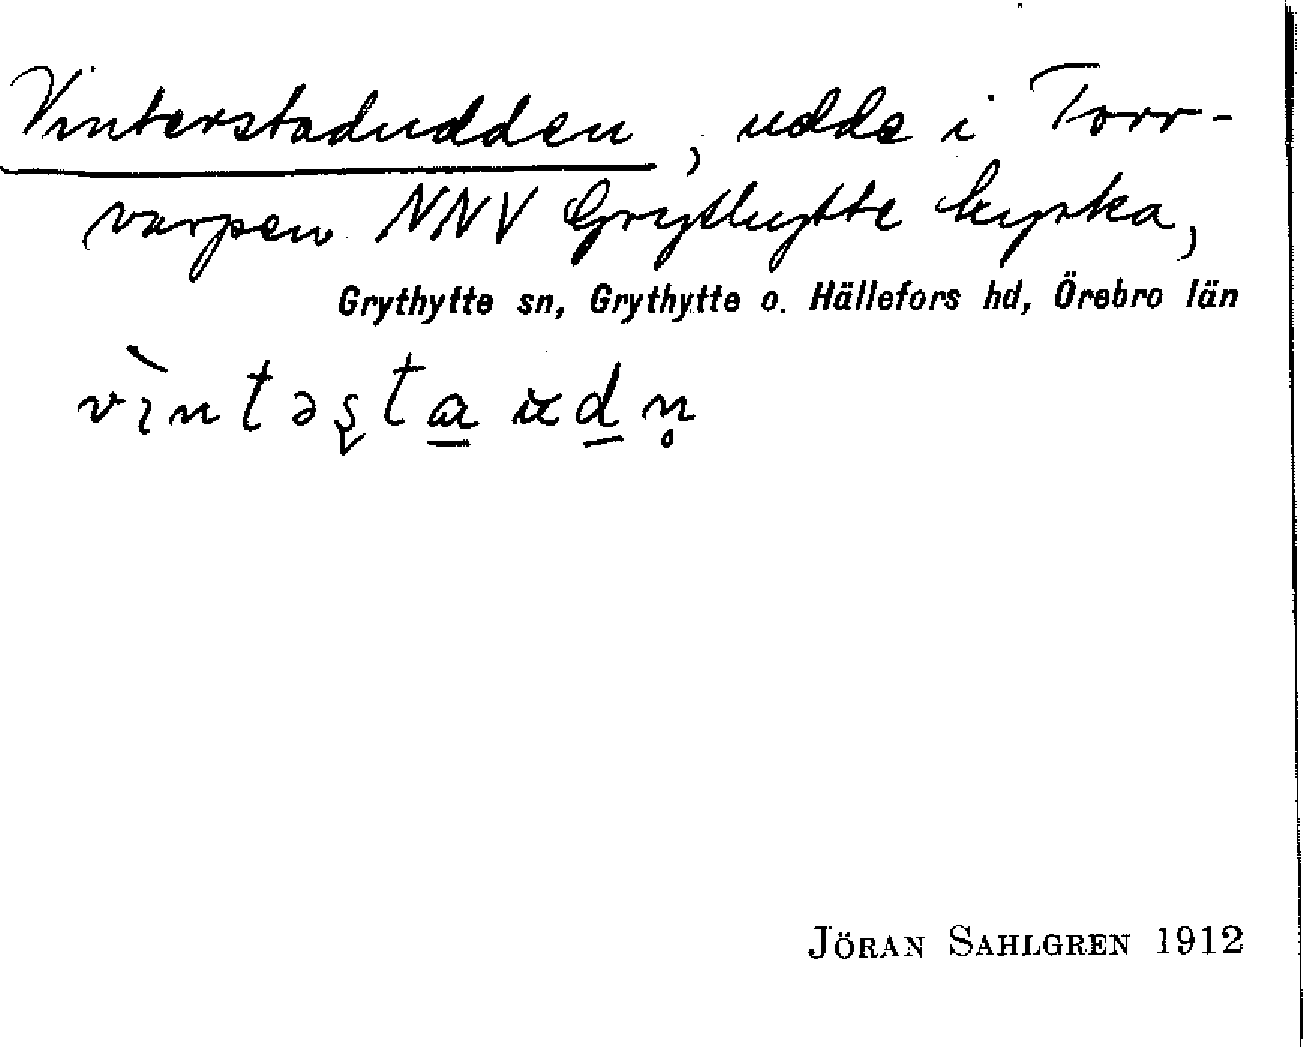 Vinterstadudden, udde i Torr-
varpen NNV Grythytte kyrka,
Grythytte sn, Grythytte o. Hällefors hd, Örebro län
vìntəʂta̲ ud̲n̥
JÖRAN SAHLGREN 1912